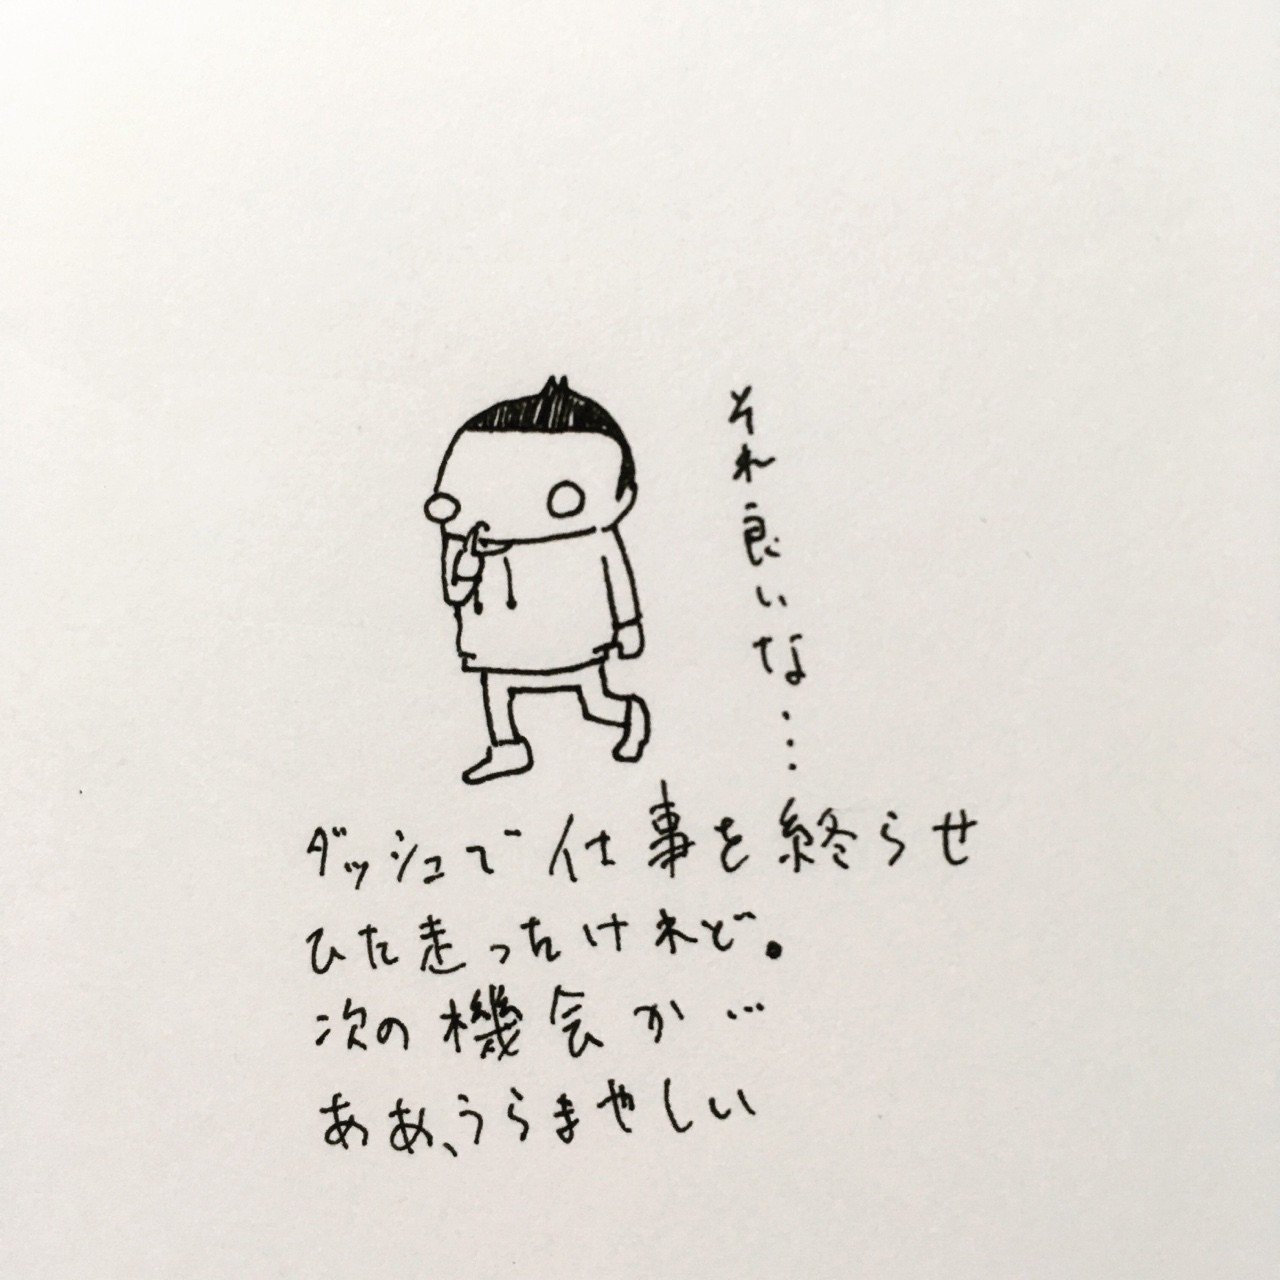 それ良いな…
ダッシュで仕事を終らせ
ひた走ったけれど。
次の機会か…
ああ、うらまやしい